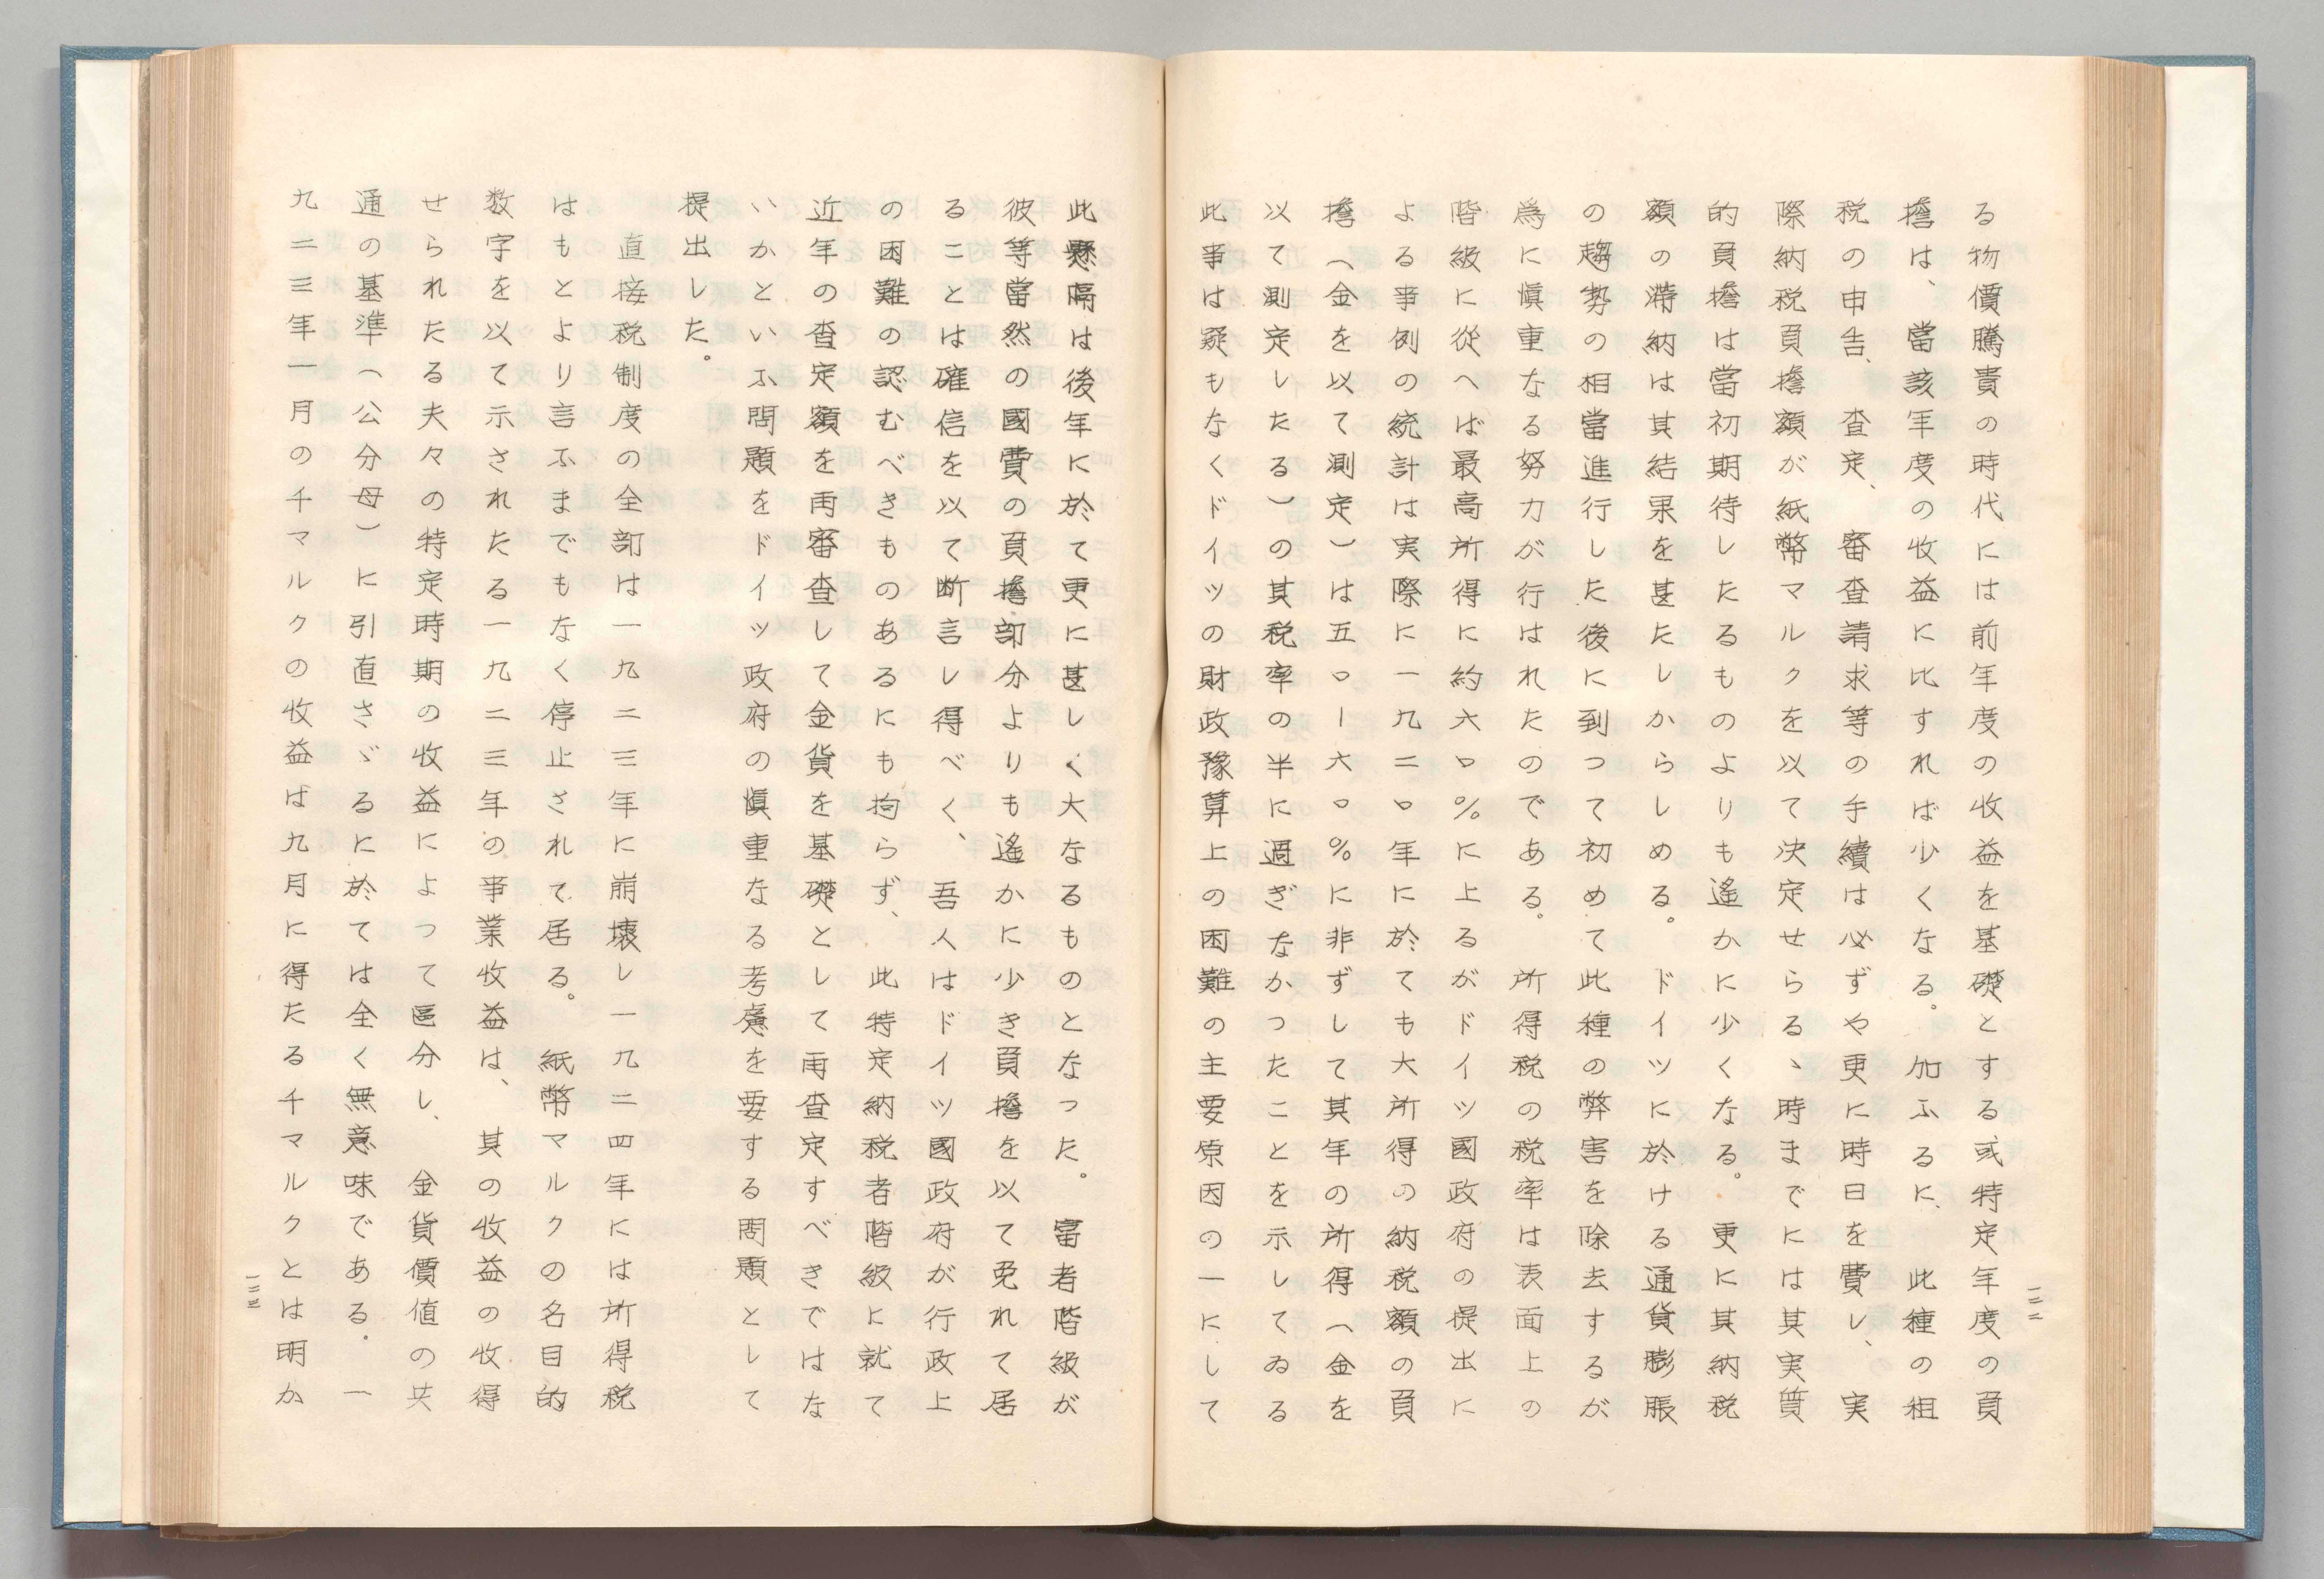 る物價騰貴の時代には前年度の收益を基礎とする或特定年度の負
擔は、當該年度の收益に比すれば少くなる。加ふるに、此種の租
税の申告、査定、審査請求等の手續は必ずや更に時日を費し、実
際納税負擔額が紙幣マルクを以て決定せらるゝ時までには其実質
的負擔は當初期待したるものよりも遙かに少くなる。更に其納税
額の滞納は其結果を甚たしからしめる。ドイツに於ける通貨膨脹
の趨勢の相當進行した後に到つて初めて此種の弊害を除去するが
為に愼重なる努力が行はれたのである。所得税の税率は表面上の
階級に從へば最高所得に約六〇%に上るがドイツ國政府の提出に
よる事例の統計は実際に一九二〇年に於ても大所得の納税額の負
擔（金を以て測定）は五〇ー六〇%に非ずして其年の所得（金を
以て測定したる）の其税率の半に過ぎなかつたことを示してゐる
此事は疑もなくドイツの財政豫算上の困難の主要原因の一にして
一三二
此懸隔は後年に於て更に甚しく大なるものとなつた。富者階級が
彼等當然の國費の負擔部分よりも遙かに少き負擔を以て免れて居
ることは確信を以て断言し得べく、吾人はドイツ國政府が行政上
の困難の認むべきものあるにも拘らず、此特定納税者階級に就て
近年の査定額を再審査して金貨を基礎として再査定すべきではな
いかといふ問題をドイツ政府の愼重なる考慮を要する問題として
提出した。
直接税制度の全部は一九二三年に崩壊し一九二四年には所得税
はもとより言ふまでもなく停止されて居る。紙幣マルクの名目的
数字を以て示されたる一九二三年の事業收益は、其の收益の收得
せられたる夫々の特定時期の收益によつて區分し、金貨價値の共
通の基準（公分母）に引直さゞるに於ては全く無意味である。一
九二三年一月の千マルクの收益は九月に得たる千マルクとは明か
一三三